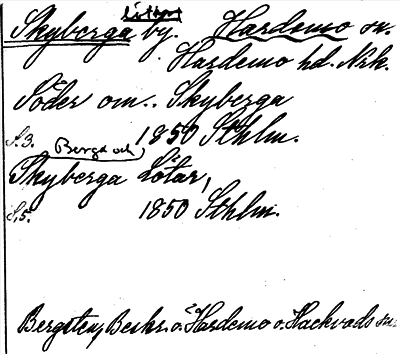 Skyberga by. Hardemo sn.
Hardemo hd. Nrk.
Söder om.. Skyberga
S.3. 1850 Sthlm.
Berga och
Skyberga Lötar,
S.5. 1850 Sthlm.
Bergsten, Beskr. o. Hardemo o. Hackvads sn: